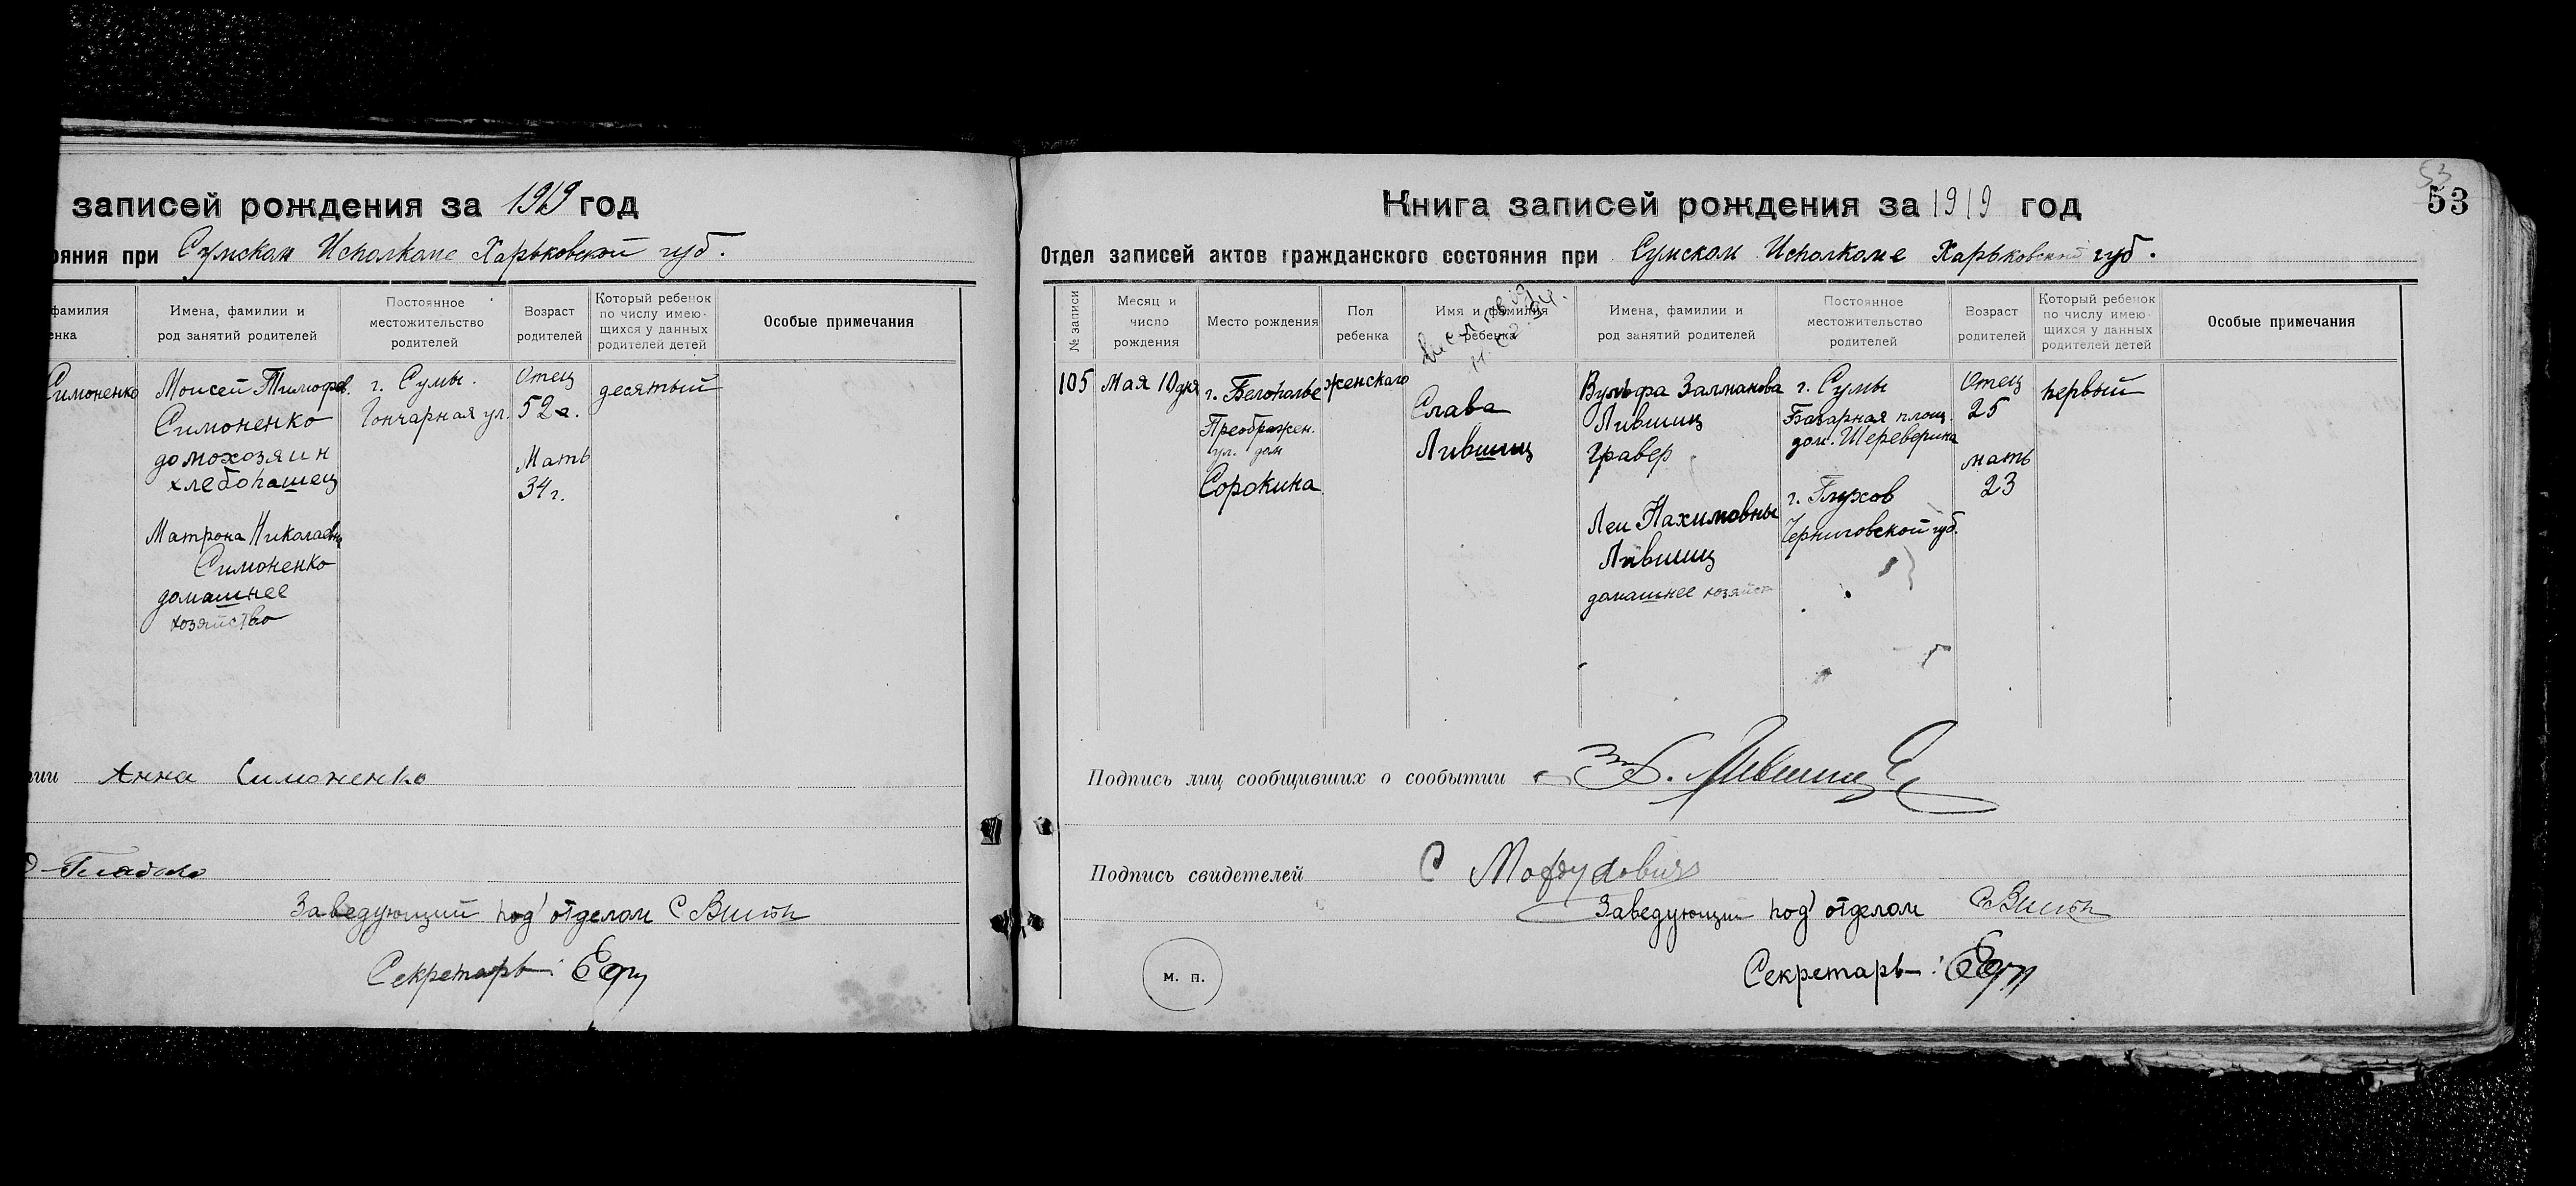 записей рождения за 1919 год
ояния при Сумском Исполкоме Харьковской губ.
фамилия
енка
Имена, фамилии и
род занятий родителей
Постоянное
местожительство
родителей
Возраст
родителей
Который ребенок
по числу имею-
щихся у данных
родителей детей
Особые примечания
Симоненко
Моисей Тимофев.
Симоненко
домохозяин
хлебопашец
Матрона Николаевна
Симоненко
домашнее
хозяйство
г. Сумы.
Гончарная ул.
Отец
52 г.
Мать
34 г.
десятый
тии Анна Симоненко
Заведующий под'отделом
Секретарь:
53
53
Книга записей рождения за 1919 год
Отдел записей актов гражданского состояния при Сумском Исполкоме Харьковской губ.
№ записи
Месяц и
число
рождения
Место рождения
Пол
ребенка
Имя и фамилия
ребенка
Имена, фамилии и
род занятий родителей
Постоянное
местожительство
родителей
Возраст
родителей
Который ребенок
по числу имею-
щихся у данных
родителей детей
Особые примечания
105
Мая 10 дня
г. Белополье
Преображен.
ул. дом
Сорокина
женскаго
Слава
Лившиц
Вульфа Залманова
Лившиц
гравер
Леи Нахимовны
Лившиц
домашнее хозяйств
г. Сумы
Базарная площ.
дом. Шереверина
г. Глухов
Черниговской губ.
Отец
25
мать
23
первый
Подпись лиц сообщивших о сообытии Лившиц
Подпись свидетелей
Заведующий под'отделом
м. п.
Секретарь: